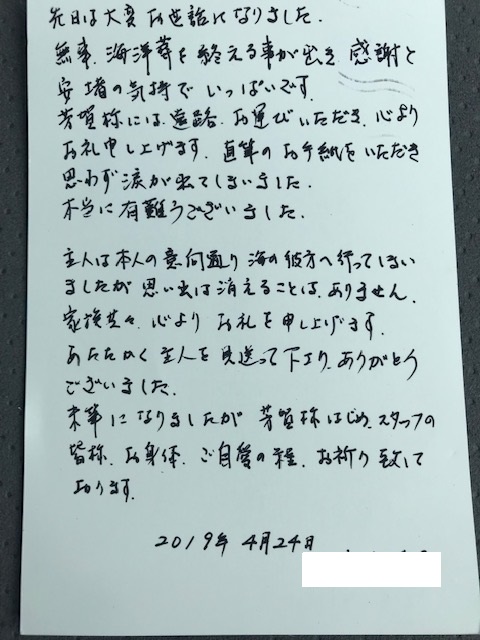 先日は大変お世話になりました.
無事、海洋葬を終える事が出き 感謝と
安堵の気持で いっぱいです.
芳賀様には、遠路、お運びいただき、心より
お礼申し上げます. 直筆のお手紙をいただき
思わず涙が出てしまいました.
本当に有難うございました.
主人は本人の意向通り 海の彼方へ行ってしまい
ましたが 思い出は消えることは、ありません.
家族共々、心より お礼を申し上げます.
あたたかく主人を見送って下さり、ありがとう
ございました.
末筆になりましたが 芳賀様はじめ、スタッフの
皆様、お身体、ご自愛の程、お祈り致して
おります.
2019年 4月24日